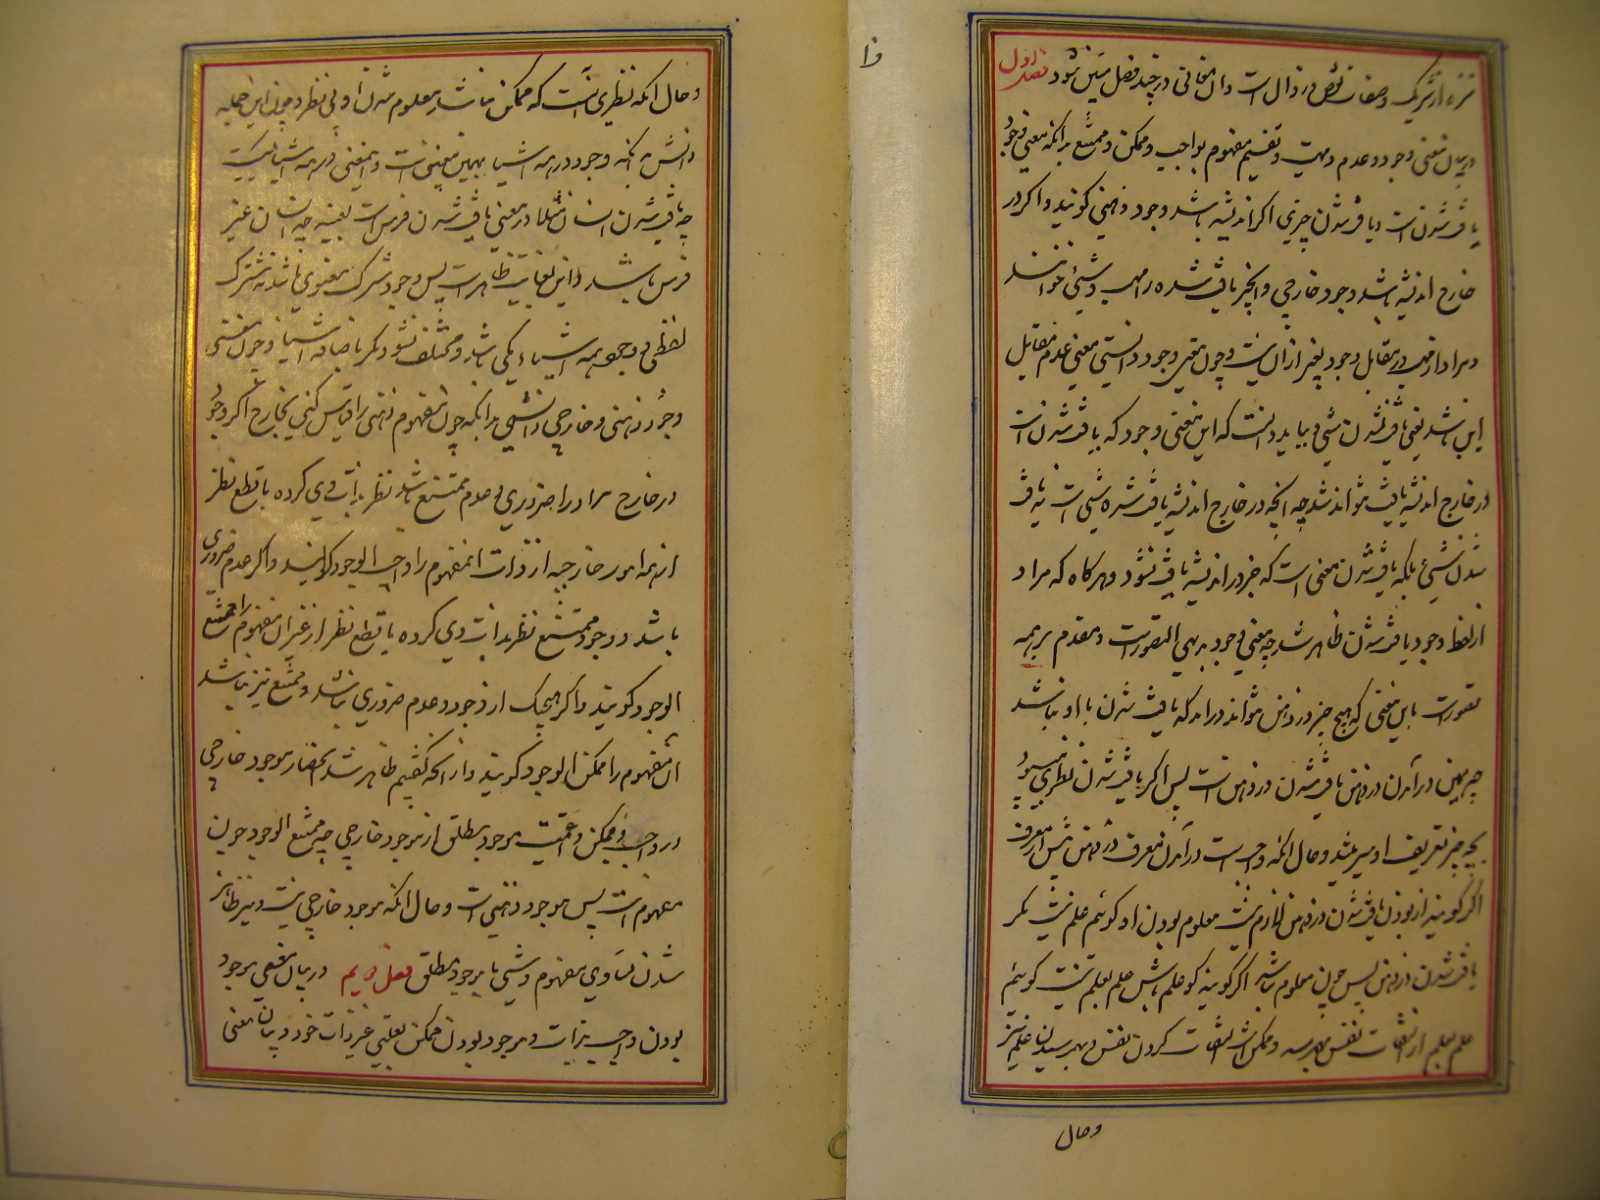 منزه از شریک و صفات نقص و زوال است و ال معانی در چند فصل مبین شود فصل اول
در بیان معنی وجود و عدم و مهیت و تقسیم مفهوم بواجب و ممکن و ممتنع بدانکه معنی وجود
یافت شدن است و یافت شدن چیزی اگر در اندیشه باشد وجود ذهنی گویند و اگر در
خارج اندیشه باشد وجود خارجی و انچیز یافت شده را مهیت و شئ خوانند
و مراد از مهیت در مقابل وجود بغیر ازان نیست و چون معنی وجود دانستی معنی عدم مقابل
این باشد یعنی یافت نشدن شئ و بباید دانست که این معنی وجود که یافت شدن است
در خارج اندیشه یافت نتواند شد چه انچه در خارج اندیشه یافت شده شئ است نه یافت
شدن شئ بلکه یافت شدن معنی است که جز در اندیشه یافت نشود و هرگاه که مراد
از لفظ وجود یافت شدن ظاهر شد چه معنی وجود بدیهی التصورست و مقدم بر همه
تصورات باین معنی که هیچ چیز در ذهن نتواند درامد که یافت شدن با او نباشد
چه همین در آمدن در ذهن یافت شدن در ذهن است پس اگر یافت شدن نظری میبود
بچه چیز تعریف او میسر میشد و حال انکه واجب است در آمدن معرف در ذهن پیش از معرف
اگر گویند از بودن یافت شدن در ذهن لازم نیست معلوم بودن او گوئیم علم نیست مگر
یافت شدن در ذهن پس چون معلوم نباشد اگر گویند گو علم باش علم بعلم نیست گوئیم
علم بعلم از التفات نفس بهم رسد و ممکن است التفات کردن نفس و بهم رسیدن علم نیز
و حال
و حال انکه نظری آنست که ممکن نباشد معلوم شدن او بی نظر و چون این جمله
دانسته شد بدانکه وجود در همه اشیا بهمین معنی است و این معنی در همه اشیا یکیست
چه یافت شدن انسان مثلا در معنی یافت شدن فرس است بعینه چه انسان غیر
فرس باشد و این بغایت ظاهر است پس وجود مشترک معنوی باشد نه مشترک
لفظی و وجود همه اشیاء یکی باشد و مختلف نشود مگر باضافه اشیا و چون معنی
وجود ذهنی و خارجی دانستی بدانکه چون مفهوم ذهنی را قیاس کنی بخارج اگر وجود
در خارج مر او را ضروری و عدم ممتنع باشد نظر بذات وی کرده با قطع نظر
از همه امور خارجه از ذات انمفهوم را واجب الوجود گویند و اگر عدم ضروری
باشد و وجود ممتنع نظر بذات وی کرده با قطع نظر از غیر ان مفهوم را ممتنع
الوجود گویند و اگر هیچیک از وجود و عدم ضروری نباشد و ممتنع نیز نباشد
ان مفهوم را ممکن الوجود گویند و از انچه گفتیم ظاهر شد انحصار موجود خارجی
در واجب و ممکن و اعمیت موجود مطلق از موجود خارجی چه ممتنع الوجود چون
مفهوم است پس موجود ذهنی است و حال انکه موجود خارجی نیست و نیز ظاهر
شد تساوی مفهوم و شئ با موجود مطلق فصل دویم در بیان معنی موجود
بودن واجب بذات و موجود بودن ممکن بعلتی غیر ذات خود و بیان معنی